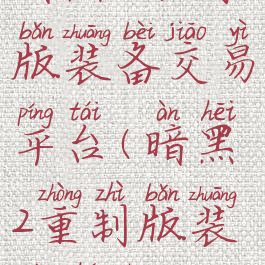 bǎn zhuāng bèi jiāo yì
版装备交易
píng tái àn hēi
平台(暗黑
zhòng zhì bǎn zhuāng
2重制版装